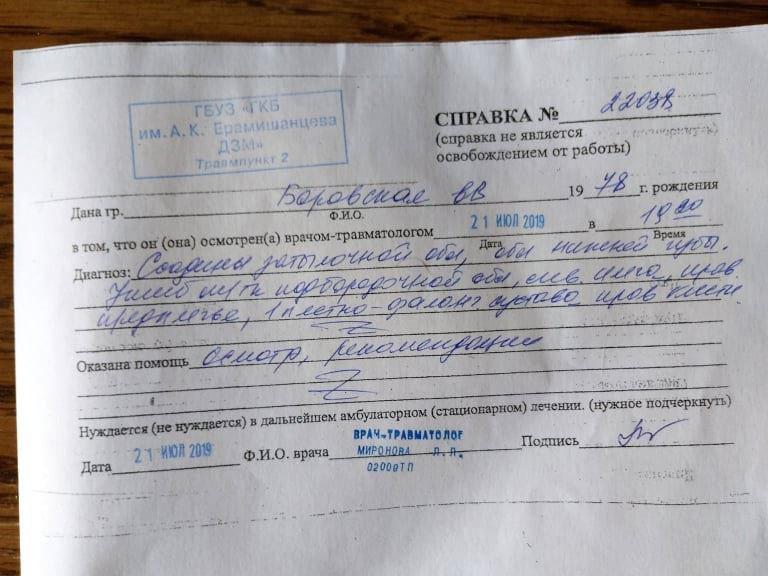 ГБУЗ «ГКБ
им. А. К. Ерамишанцева
ДЗМ»
Травмпункт 2
СПРАВКА № 22038
(справка не является
освобождением от работы)
Дана гр. Боровская ВВ 1978 г. рождения
Ф.И.О.
в том, что он (она) осмотрен(а) врачом-травматологом 21 ИЮЛ 2019 в 19 00
Дата Время
Диагноз: Ссадины затылочной обл, обл нижней губы.
Ушиб м/тк подбородочной обл, лев плеча, прав
предплечье, 1 плестно-фаланг сустава прав кисти.
Оказана помощь осмотр, рекомендации
Нуждается (не нуждается) в дальнейшем амбулаторном (стационарном) лечении. (нужное подчеркнуть)
Дата 21 ИЮЛ 2019 Ф.И.О. врача ВРАЧ-ТРАВМАТОЛОГ Подпись
МИРОНОВА Л.Л.
0200вТП